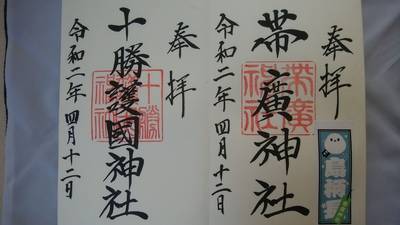 奉拝
帯廣神社
令和二年四月十二日
帯廣神社
奉拝
十勝護國神社
令和二年四月十二日